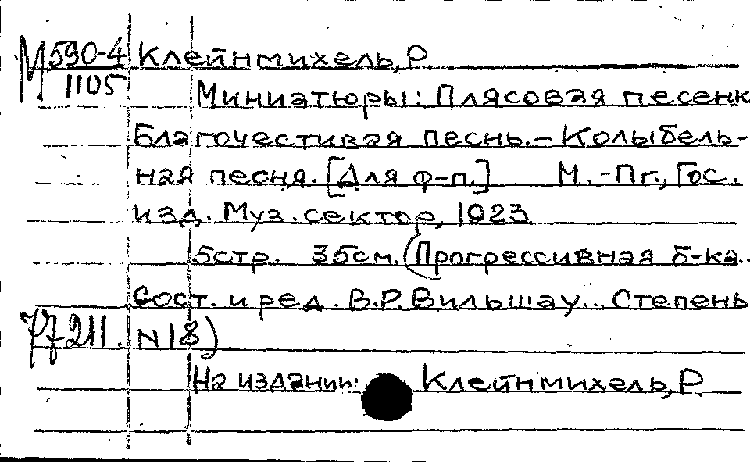 М 590-4 Клейнмихель, Р.
1105 Миниатюры: Плясовая песенк
Благочестивая песнь. - Колыбель-
ная песня. [Для ф-п.] М.-Пг., Гос.
изд. Муз. сектор, 1923
5стр. 35см. (Прогрессивная б-ка.
Сост. и ред. В.Р. Вильшау. Степень
211. N18)
На издании: Клейнмихель, Р.